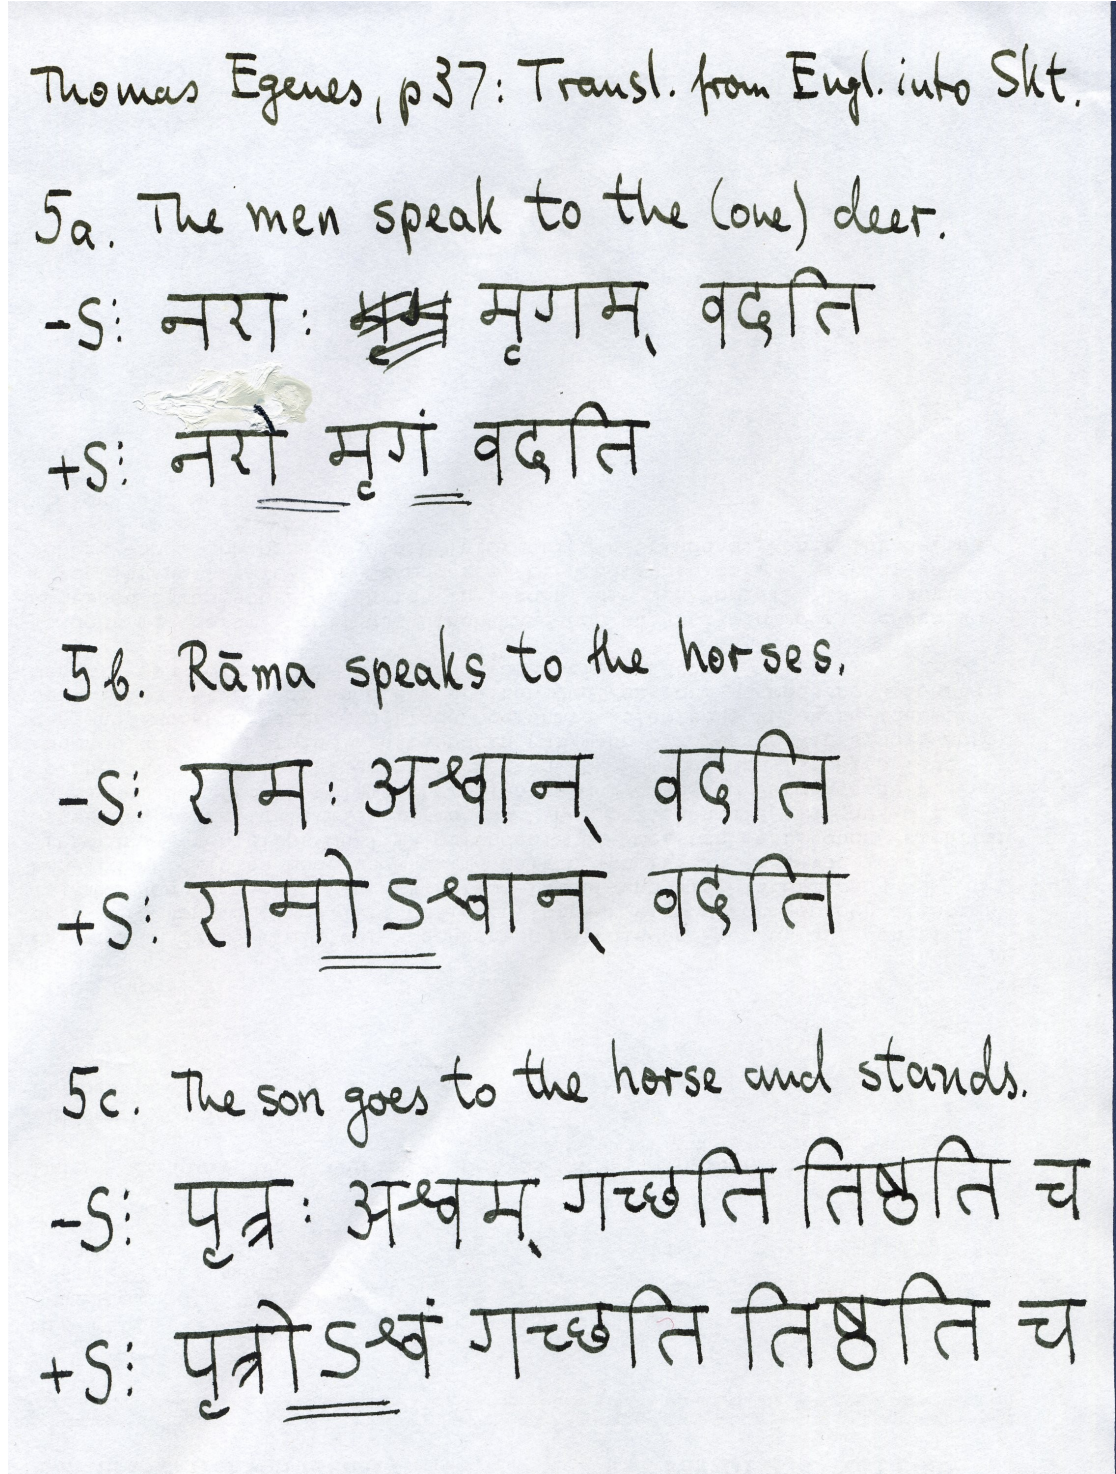 Thomas Egenes, p37: Transl. from Engl. into Skt.
5a. The men speak to the (one) deer.
-S: नराः मृगम् वदति
+S: नरो मृगं वदति
5b. Rāma speaks to the horses.
-S: रामः अश्वान् वदति
+S: रामोऽश्वान् वदति
5c. The son goes to the horse and stands.
-S: पृत्रः अश्वम् गच्छति तिष्ठति च
+S: पृत्रोऽश्वं गच्छति तिष्ठति च